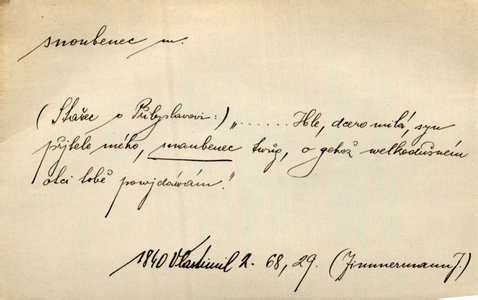 snoubenec m.
(Stařec o Přibyslavovi:) „ . . . . . . . Hle, dcero milá, syn
přjtele mého, snaubenec twůg, o gehož welkodušném
otci tobě powjdáwám."
1840 Vlastimil 2. 68, 29. (Zimmermann J.)